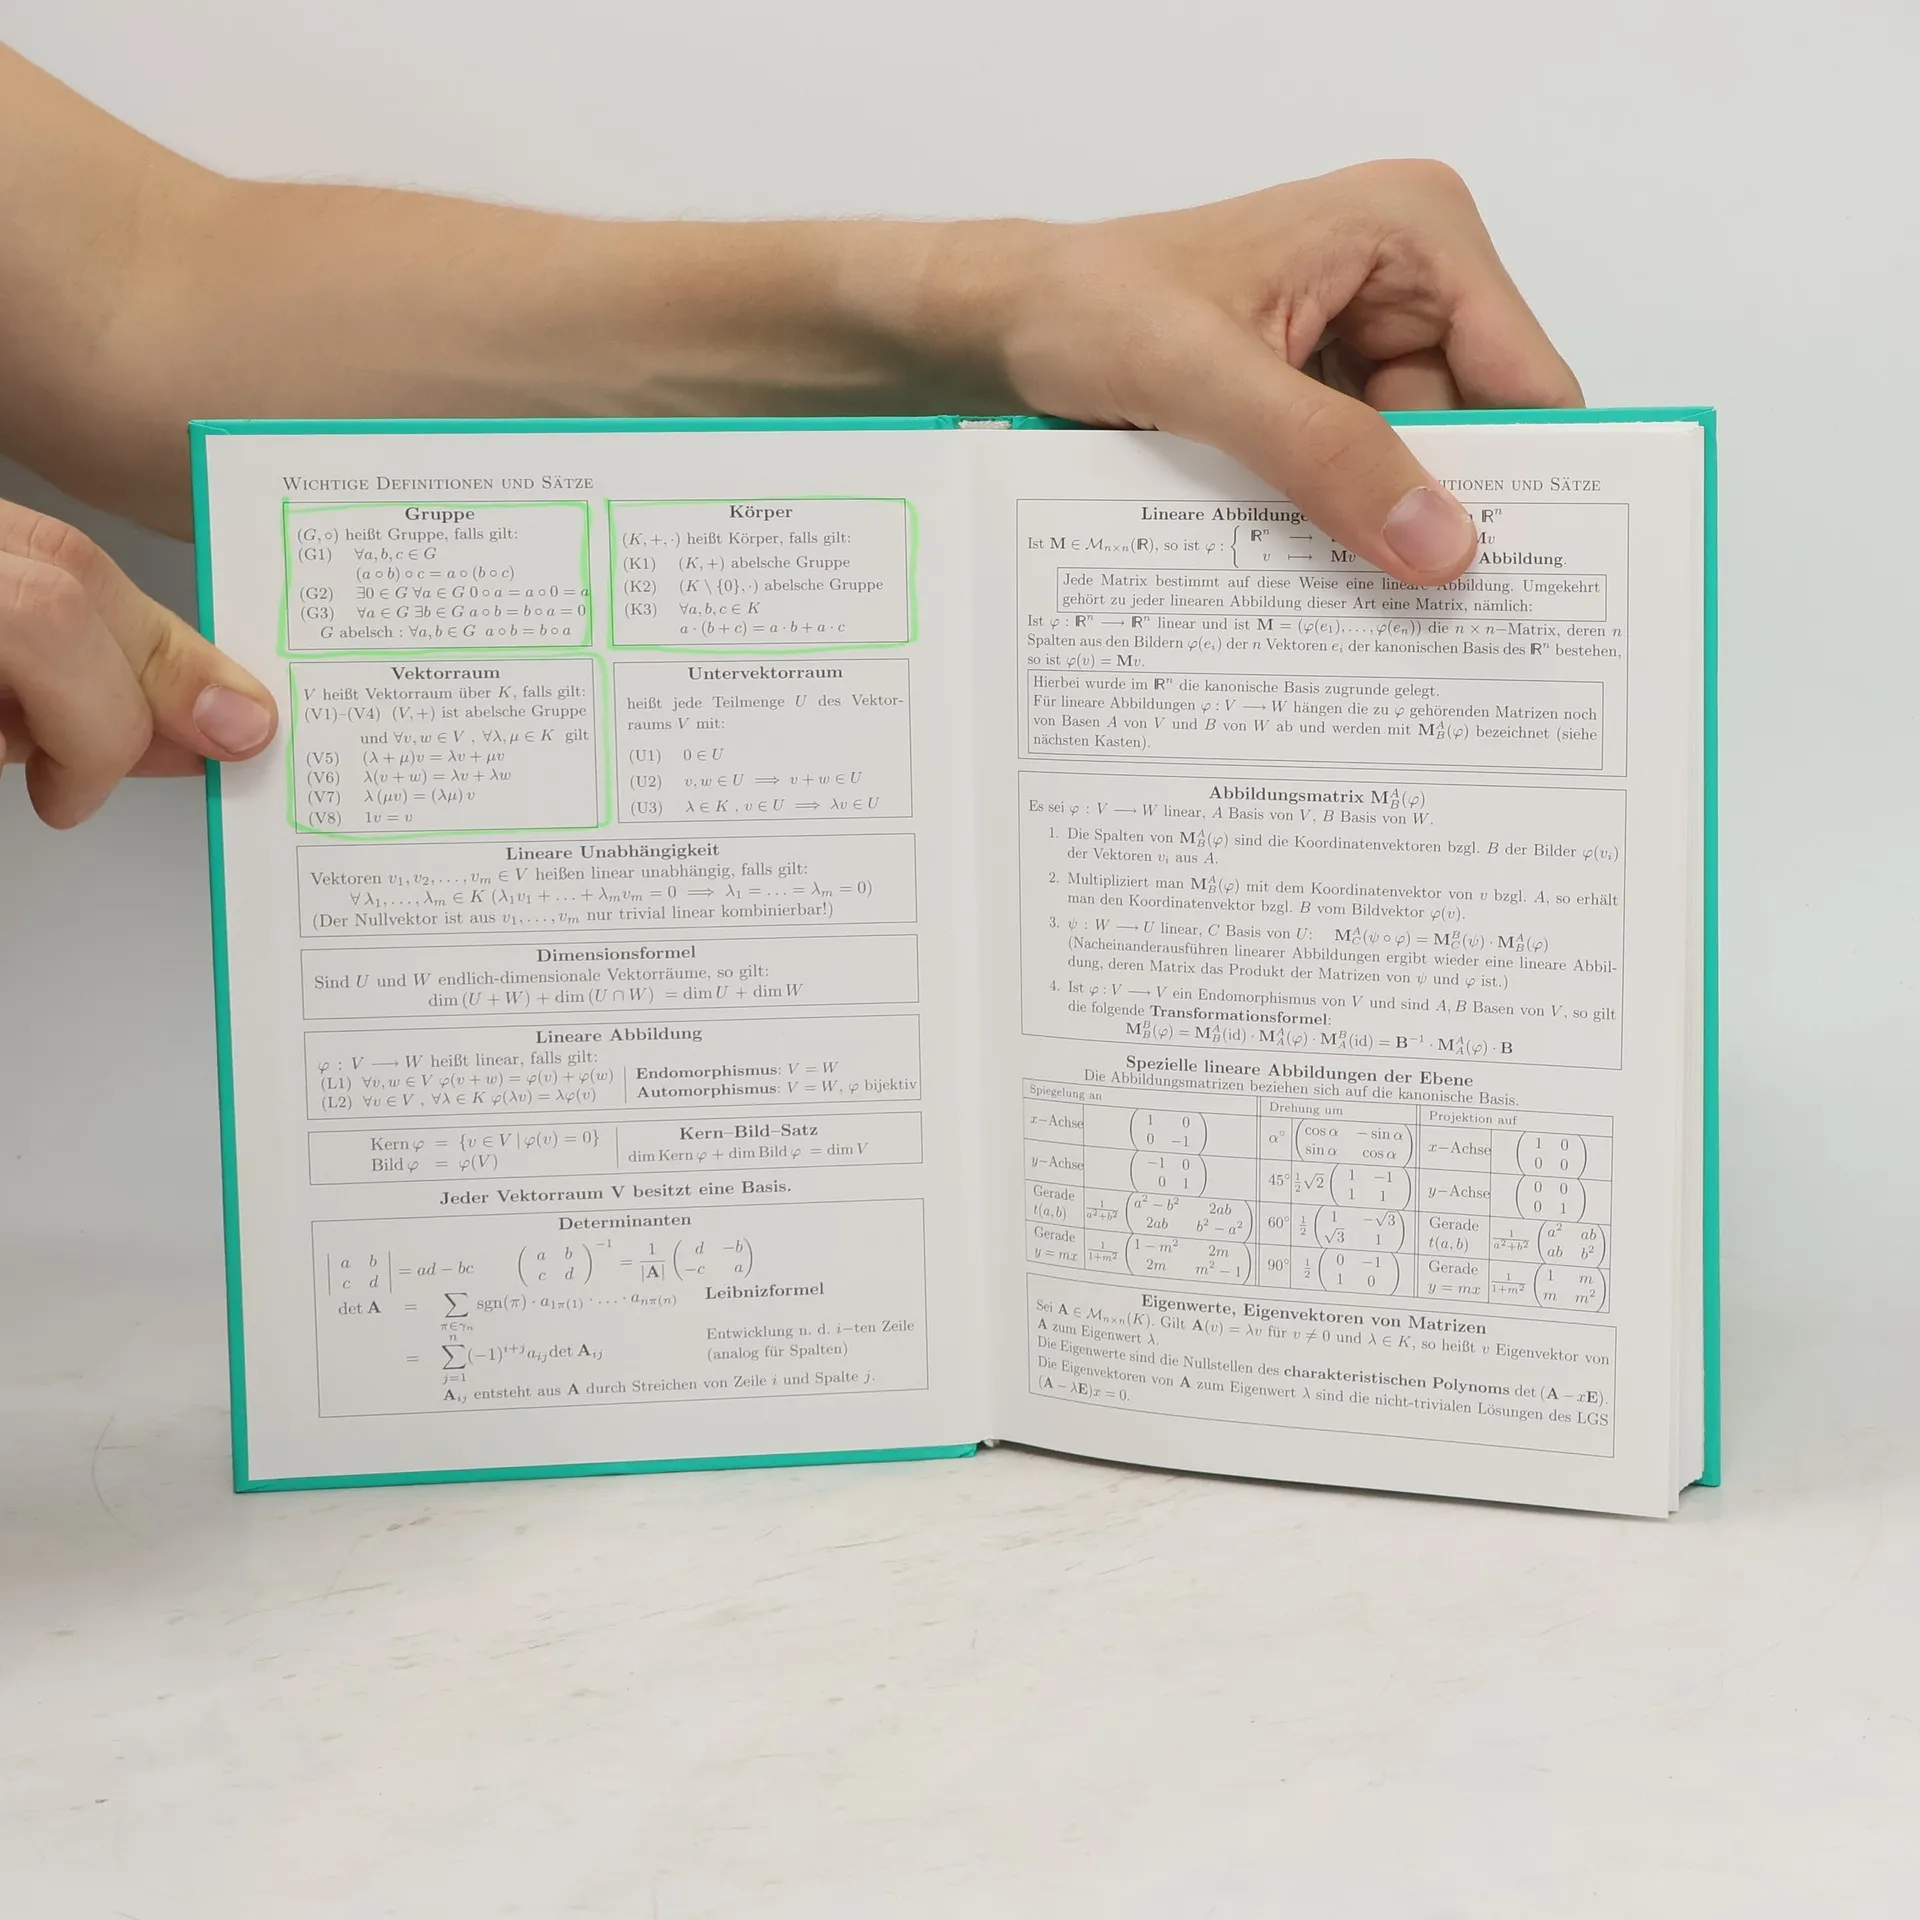 WICHTIGE DEFINITIONEN UND SÄTZE
Gruppe
(G, ∘) heißt Gruppe, falls gilt:
(G1) ∀a, b, c ∈ G
(a ∘ b) ∘ c = a ∘ (b ∘ c)
(G2) ∃0 ∈ G ∀a ∈ G 0 ∘ a = a ∘ 0 = a
(G3) ∀a ∈ G ∃b ∈ G a ∘ b = b ∘ a = 0
G abelsch : ∀a, b ∈ G a ∘ b = b ∘ a
Körper
(K, +, ·) heißt Körper, falls gilt:
(K1) (K, +) abelsche Gruppe
(K2) (K \ {0}, ·) abelsche Gruppe
(K3) ∀a, b, c ∈ K
a · (b + c) = a · b + a · c
Vektorraum
V heißt Vektorraum über K, falls gilt:
(V1)–(V4) (V, +) ist abelsche Gruppe
und ∀v, w ∈ V , ∀λ, μ ∈ K gilt
(V5) (λ + μ)v = λv + μv
(V6) λ(v + w) = λv + λw
(V7) λ (μv) = (λμ) v
(V8) 1v = v
Untervektorraum
heißt jede Teilmenge U des Vektor-
raums V mit:
(U1) 0 ∈ U
(U2) v, w ∈ U ⟹ v + w ∈ U
(U3) λ ∈ K , v ∈ U ⟹ λv ∈ U
Lineare Unabhängigkeit
Vektoren v₁, v₂, . . . , vₘ ∈ V heißen linear unabhängig, falls gilt:
∀ λ₁, . . . , λₘ ∈ K (λ₁v₁ + . . . + λₘvₘ = 0 ⟹ λ₁ = . . . = λₘ = 0)
(Der Nullvektor ist aus v₁, . . . , vₘ nur trivial linear kombinierbar!)
Dimensionsformel
Sind U und W endlich-dimensionale Vektorräume, so gilt:
dim (U + W) + dim (U ∩ W) = dim U + dim W
Lineare Abbildung
φ : V ⟶ W heißt linear, falls gilt:
(L1) ∀v, w ∈ V φ(v + w) = φ(v) + φ(w)
(L2) ∀v ∈ V , ∀λ ∈ K φ(λv) = λφ(v)
Endomorphismus: V = W
Automorphismus: V = W, φ bijektiv
Kern φ = {v ∈ V | φ(v) = 0}
Bild φ = φ(V)
Kern–Bild–Satz
dim Kern φ + dim Bild φ = dim V
Jeder Vektorraum V besitzt eine Basis.
Determinanten
| a b |
| c d | = ad − bc
( a b )⁻¹ = 1/|A| ( d −b )
( c d ) ( −c a )
det A = ∑ sgn(π) · a₁π(1) · . . . · aₙπ(n) Leibnizformel
π∈γₙ
n
= ∑ (−1)ⁱ⁺ʲ aᵢⱼ det Aᵢⱼ
j=1
Entwicklung n. d. i−ten Zeile
(analog für Spalten)
Aᵢⱼ entsteht aus A durch Streichen von Zeile i und Spalte j.
UND SÄTZE
Lineare ℝⁿ
Ist M ∈ ℳₙₓₙ(ℝ), so ist φ : { ℝⁿ ⟶
v ⟼ Mv Abbildung.
Jede Matrix bestimmt auf diese Weise eine lineare Abbildung. Umgekehrt
gehört zu jeder linearen Abbildung dieser Art eine Matrix, nämlich:
Ist φ : ℝⁿ ⟶ ℝⁿ linear und ist M = (φ(e₁), . . . , φ(eₙ)) die n × n−Matrix, deren n
Spalten aus den Bildern φ(eᵢ) der n Vektoren eᵢ der kanonischen Basis des ℝⁿ bestehen,
so ist φ(v) = Mv.
Hierbei wurde im ℝⁿ die kanonische Basis zugrunde gelegt.
Für lineare Abbildungen φ : V ⟶ W hängen die zu φ gehörenden Matrizen noch
von Basen A von V und B von W ab und werden mit M_B^A(φ) bezeichnet (siehe
nächsten Kasten).
Abbildungsmatrix M_B^A(φ)
Es sei φ : V ⟶ W linear, A Basis von V, B Basis von W.
1. Die Spalten von M_B^A(φ) sind die Koordinatenvektoren bzgl. B der Bilder φ(vᵢ)
der Vektoren vᵢ aus A.
2. Multipliziert man M_B^A(φ) mit dem Koordinatenvektor von v bzgl. A, so erhält
man den Koordinatenvektor bzgl. B vom Bildvektor φ(v).
3. ψ : W ⟶ U linear, C Basis von U: M_C^A(ψ ∘ φ) = M_C^B(ψ) · M_B^A(φ)
(Nacheinanderausführen linearer Abbildungen ergibt wieder eine lineare Abbil-
dung, deren Matrix das Produkt der Matrizen von ψ und φ ist.)
4. Ist φ : V ⟶ V ein Endomorphismus von V und sind A, B Basen von V, so gilt
die folgende Transformationsformel:
M_B^B(φ) = M_B^A(id) · M_A^A(φ) · M_A^B(id) = B⁻¹ · M_A^A(φ) · B
Spezielle lineare Abbildungen der Ebene
Die Abbildungsmatrizen beziehen sich auf die kanonische Basis.
Spiegelung an
x−Achse ( 1 0 )
( 0 −1 )
y−Achse ( −1 0 )
( 0 1 )
Gerade
t(a, b) 1/(a²+b²) ( a² − b² 2ab )
( 2ab b² − a² )
Gerade
y = mx 1/(1+m²) ( 1 − m² 2m )
( 2m m² − 1 )
Drehung um
α° ( cos α − sin α )
( sin α cos α )
45° ½√2 ( 1 −1 )
( 1 1 )
60° ½ ( 1 −√3 )
( √3 1 )
90° ½ ( 0 −1 )
( 1 0 )
Projektion auf
x−Achse ( 1 0 )
( 0 0 )
y−Achse ( 0 0 )
( 0 1 )
Gerade
t(a, b) 1/(a²+b²) ( a² ab )
( ab b² )
Gerade
y = mx 1/(1+m²) ( 1 m )
( m m² )
Eigenwerte, Eigenvektoren von Matrizen
Sei A ∈ ℳₙₓₙ(K). Gilt A(v) = λv für v ≠ 0 und λ ∈ K, so heißt v Eigenvektor von
A zum Eigenwert λ.
Die Eigenwerte sind die Nullstellen des charakteristischen Polynoms det (A − xE).
Die Eigenvektoren von A zum Eigenwert λ sind die nicht-trivialen Lösungen des LGS
(A − λE)x = 0.